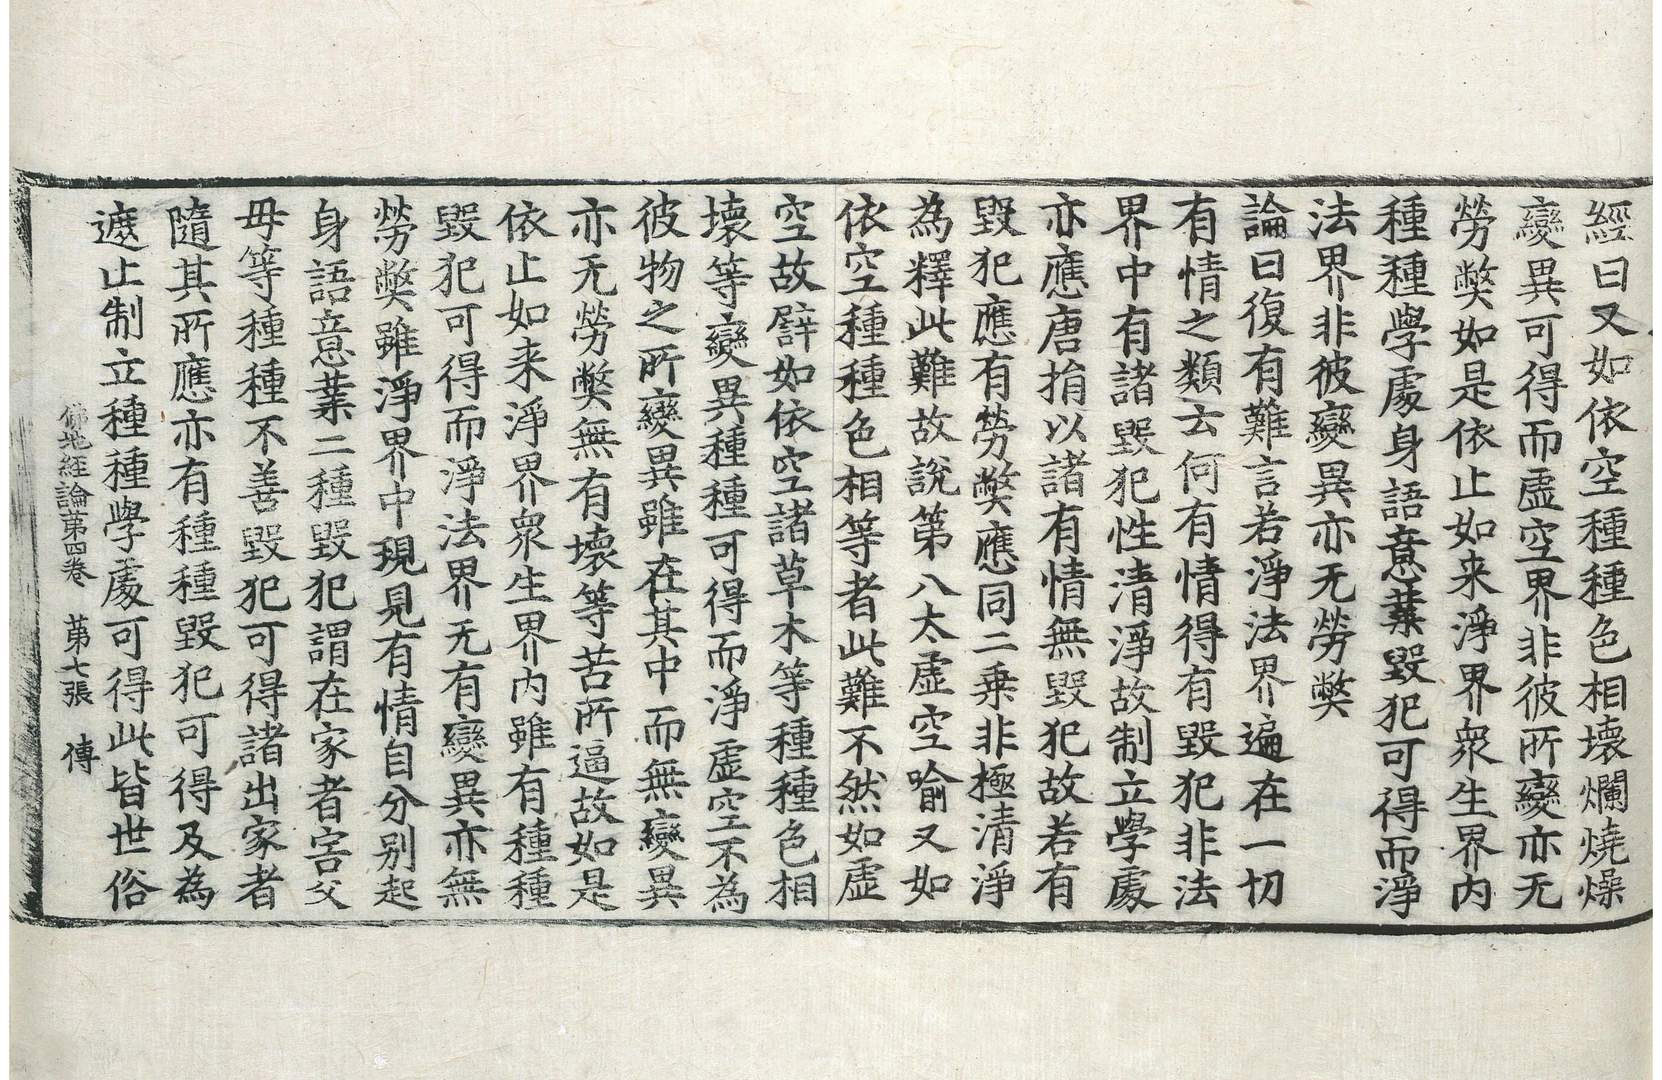 經曰又如依空種種色相壞爛燒燥
變異可得而虛空界非彼所變亦无
勞弊如是依止如来淨界衆生界内
種種學處身語意業毀犯可得而淨
法界非彼變異亦无勞弊
論曰復有難言若淨法界遍在一切
有情之類云何有情得有毀犯非法
界中有諸毀犯性清淨故制立學處
亦應唐捐以諸有情無毀犯故若有
毀犯應有勞弊應同二乗非極清淨
為釋此難故說第八太虛空喻又如
依空種種色相等者此難不然如虛
空故譬如依空諸草木等種種色相
壞等變異種種可得而淨虛空不為
彼物之所變異雖在其中而無變異
亦无勞弊無有壞等苦所逼故如是
依止如来淨界衆生界内雖有種種
毀犯可得而淨法界无有變異亦無
勞弊雖淨界中現見有情自分别起
身語意業二種毀犯謂在家者害父
母等種種不善毀犯可得諸出家者
隨其所應亦有種種毀犯可得及為
遮止制立種種學處可得此皆世俗
佛地経論第四卷　第七張　傳